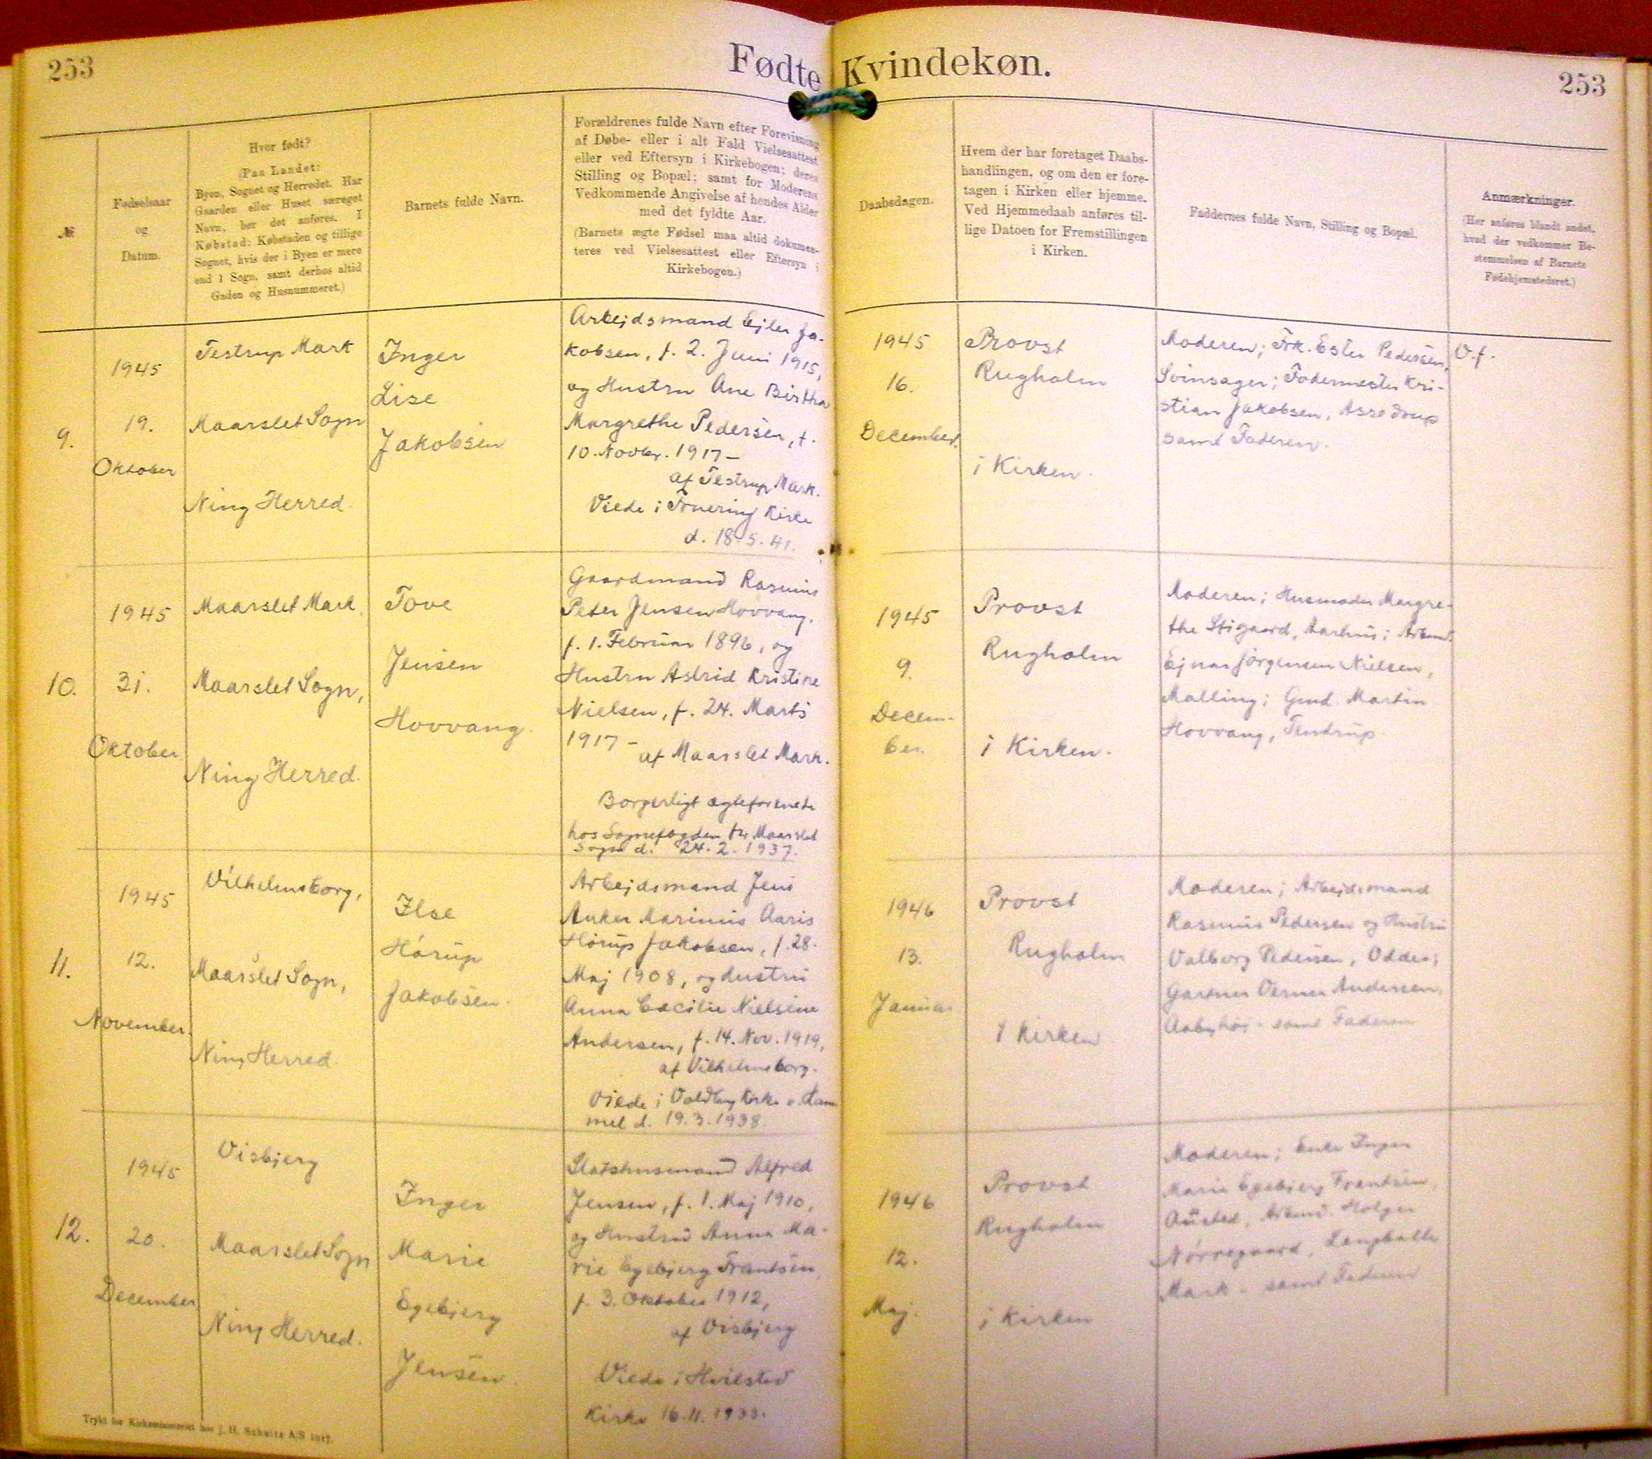 253
Fødte Kvindekøn.
253
№
Fødselsaar
og
Datum.
Hvor født?
(Paa Landet:
Byen, Sognet og Herredet. Har
Gaarden eller Huset særeget
Navn, bør det anføres. I
Købstad: Købstaden og tillige
Sognet, hvis der i Byen er mere
end 1 Sogn, samt derhos altid
Gaden og Husnummeret.)
Barnets fulde Navn.
Forældrenes fulde Navn efter Forevisning
af Døbe- eller i alt Fald Vielsesattest
eller ved Eftersyn i Kirkebogen; deres
Stilling og Bopæl; samt for Moderens
Vedkommende Angivelse af hendes Alder
med det fyldte Aar.
(Barnets ægte Fødsel maa altid dokumen-
teres ved Vielsesattest eller Eftersyn i
Kirkebogen.)
Daabsdagen.
Hvem der har foretaget Daabs-
handlingen, og om den er fore-
tagen i Kirken eller hjemme.
Ved Hjemmedaab anføres til-
lige Datoen for Fremstillingen
i Kirken.
Faddernes fulde Navn, Stilling og Bopæl.
Anmærkninger.
(Her anføres blandt andet,
hvad der vedkommer Be-
stemmelsen af Barnets
Fødehjemstedsret.)
9.
1945
19.
Oktober
Testrup Mark
Maarslet Sogn
Ning Herred.
Inger
Lise
Jakobsen
Arbejdsmand Ejler Ja-
kobsen, f. 2. Juni 1915,
og Hustru Ane Birtha
Margrethe Pedersen, f.
10. Novbr. 1917 –
af Testrup Mark.
Viede i Kirke
d. 18.5.41.
1945
16.
December.
Provst
Rugholm
i Kirken.
Moderen; Frk. Ester Pedersen,
Svinsager; Fodermester Kri-
stian Jakobsen,
samt Faderen.
O.f.
10.
1945
31.
Oktober
Maarslet Mark.
Maarslet Sogn,
Ning Herred.
Tove
Jensen
Hovvang.
Gaardmand Rasmus
Peter Jensen Hovvang,
f. 1. Februar 1896, og
Hustru Astrid Kristine
Nielsen, f. 24. Marts
1917 –
af Maarslet Mark.
Borgerligt ægteforenede
hos Sognefogden for Maarslet
Sogn d. 24.2.1937.
1945
9.
Decem-
ber.
Provst
Rugholm
i Kirken.
Moderen; Husmoder Margre-
the Stigaard, Aarhus; Arbmd.
Ejnar Jörgensen Nielsen,
Malling; Gmd. Martin
Hovvang, Tendrup.
11.
1945
12.
November.
Vilhelmsborg,
Maarslet Sogn,
Ning Herred.
Ilse
Hörup
Jakobsen.
Arbejdsmand Jens
Anker Marinus Aaris
Hörup Jakobsen, f. 28.
Maj 1908, og Hustru
Anna Cæcilie Nielsine
Andersen, f. 14. Nov. 1919,
af Vilhelmsborg.
Viede i Voldby Kirke v. Ham-
mel d. 19.3.1938.
1946
13.
Januar
Provst
Rugholm
i Kirken
Moderen; Arbejdsmand
Rasmus Pedersen og Hustru
Valborg Pedersen, Odder;
Gartner Verner Andersen,
Aabyhöj – samt Faderen
12.
1945
20.
December
Visbjerg
Maarslet Sogn
Ning Herred.
Inger
Marie
Egebjerg
Jensen.
Statshusmand Alfred
Jensen, f. 1. Maj 1910,
og Hustru Anna Ma-
rie Egebjerg Frantsen,
f. 3. Oktober 1912,
af Visbjerg
Viede i Hvilsted
Kirke 16.11.1933.
1946
12.
Maj.
Provst
Rugholm
i Kirken
Moderen; Enke Inger
Marie Egebjerg Frantsen,
Arbmd. Holger
Nörregaard, Langballe
Mark – samt Faderen
Trykt for Kirkeministeriet hos J. H. Schultz A/S 1917.